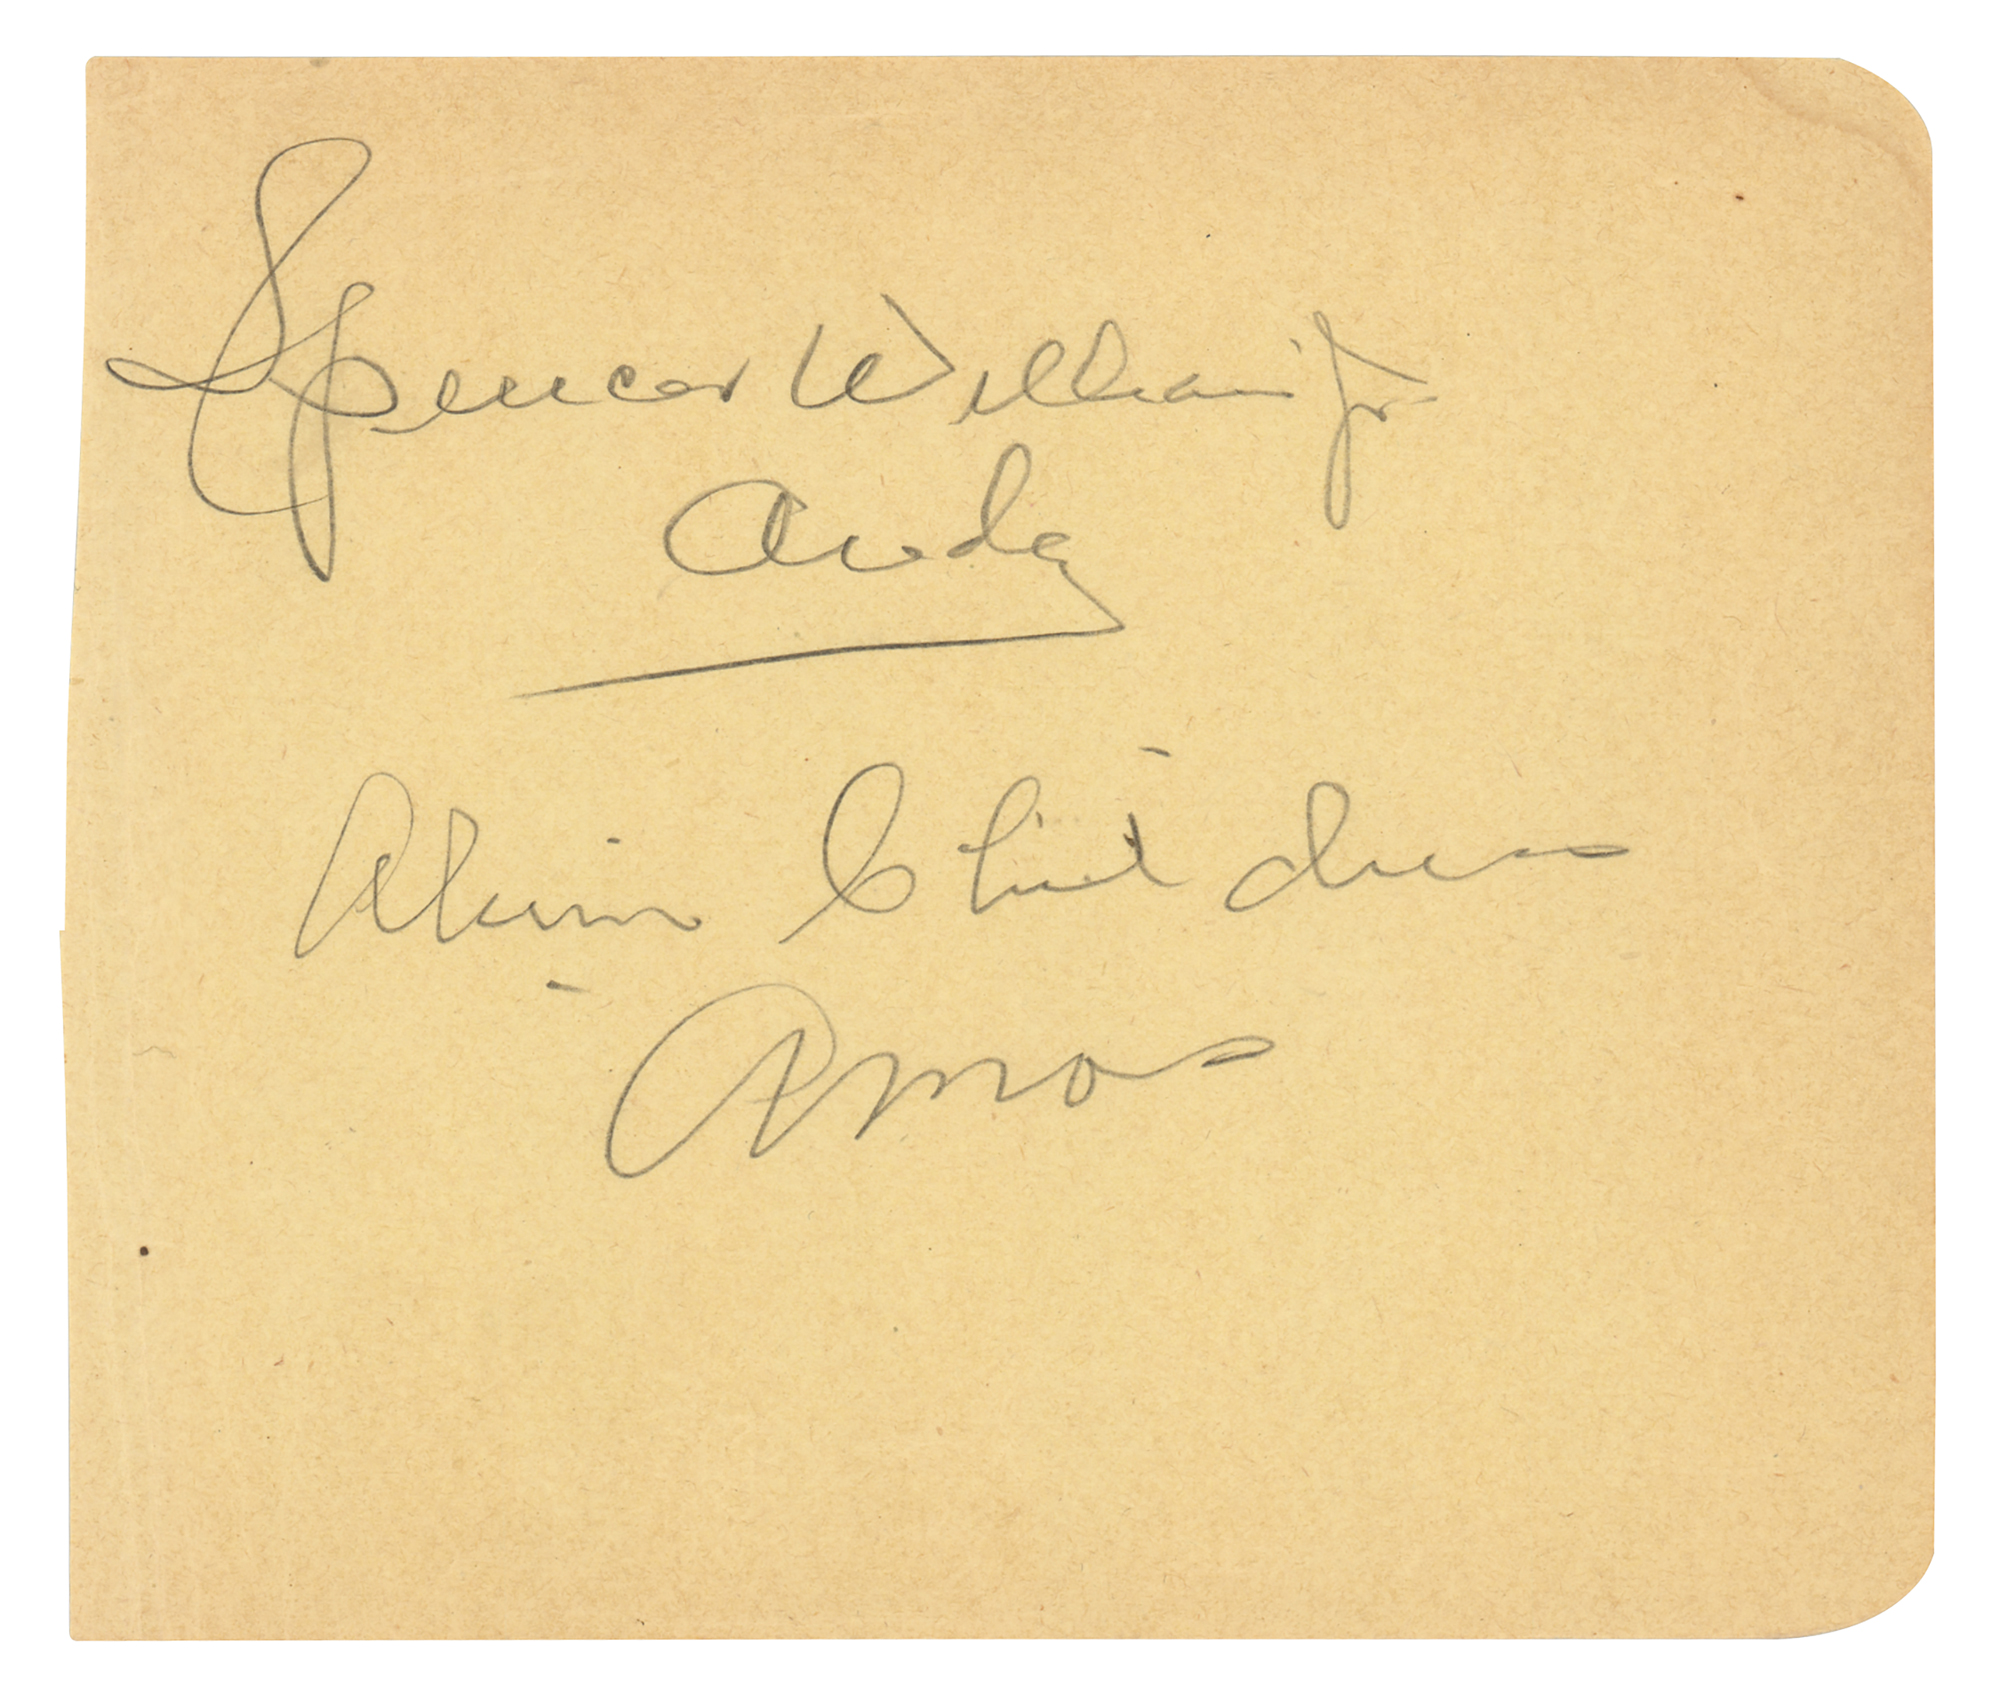 Spencer Williams Jr.
Andy
Alvin Childress
Amos